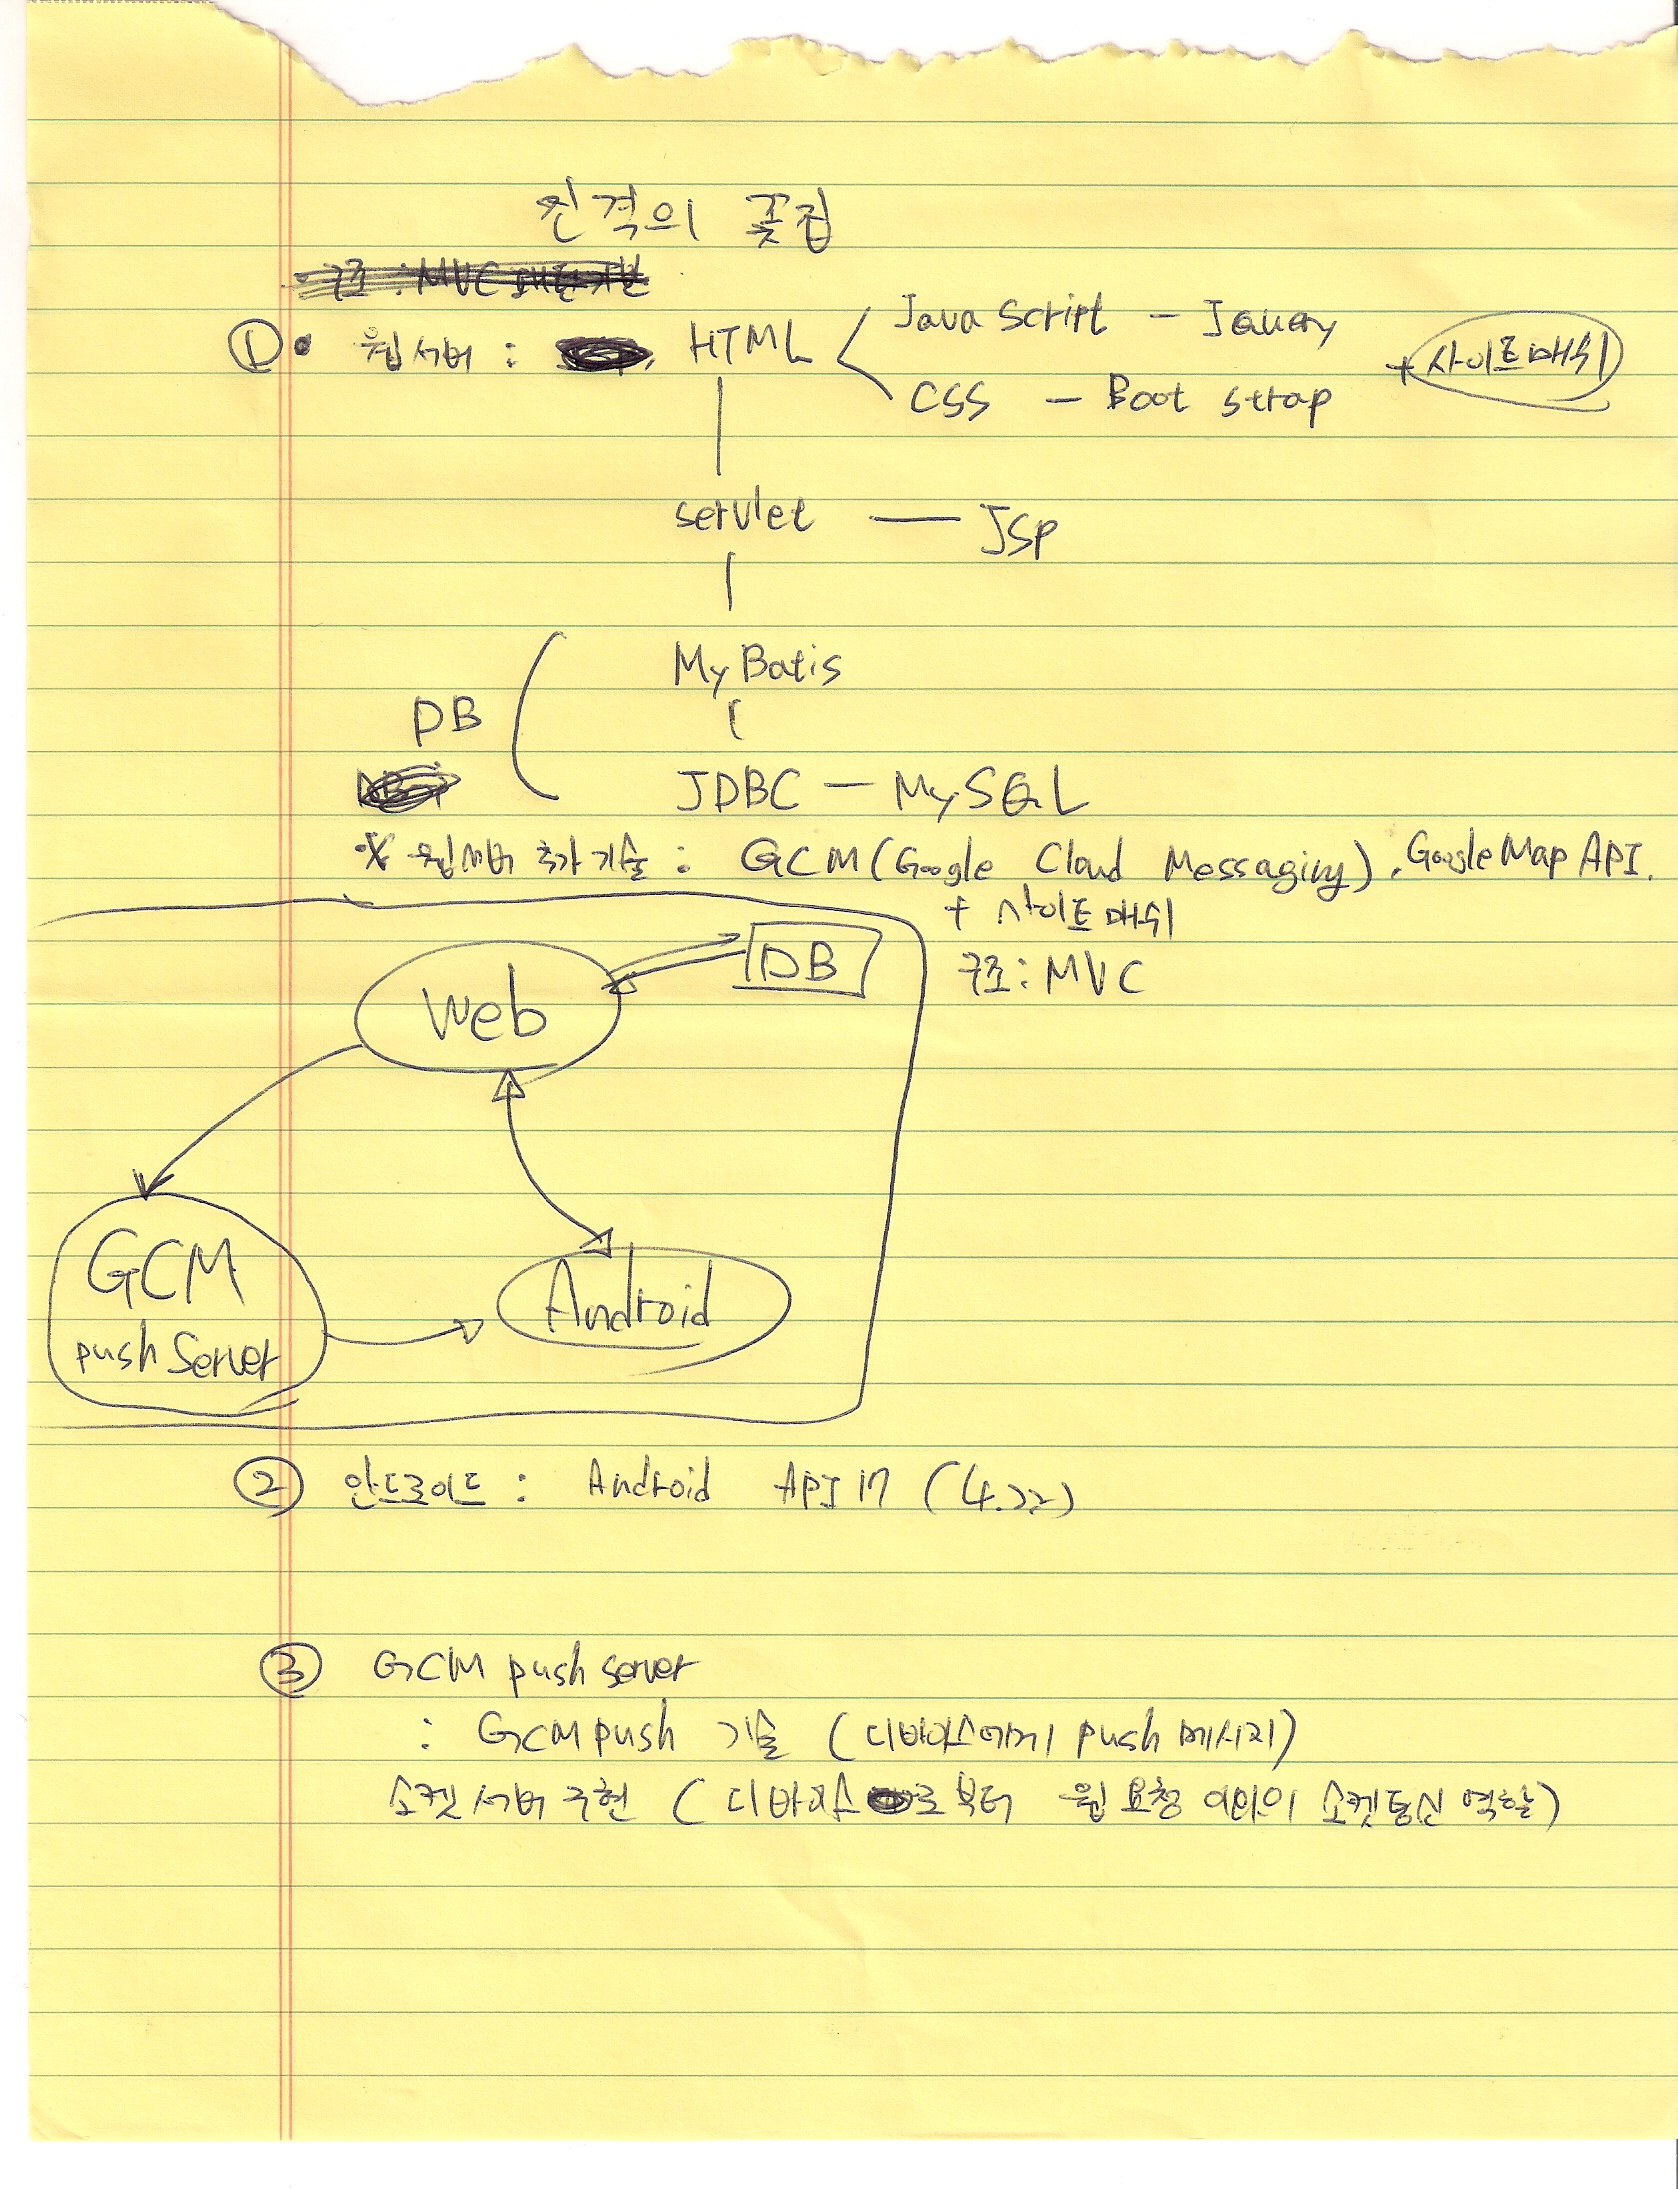 진격의 꽃집
구조 : MVC 패턴기반
① • 웹서버 : HTML < Java Script – Jquery
CSS – Boot strap + 사이트매쉬
servlet — JSP
MyBatis
DB
JDBC – MySQL
※ 웹서버 추가기술 : GCM (Google Cloud Messaging), Google Map API.
+ 사이트매쉬
구조 : MVC
Web
DB
GCM
push Server
Android
② 안드로이드 : Android API 17 (4.22)
③ GCM push server
: GCM push 기술 (디바이스에게 push 메시지)
소켓 서버 구현 (디바이스로부터 웹 요청 이외의 소켓통신 역할)